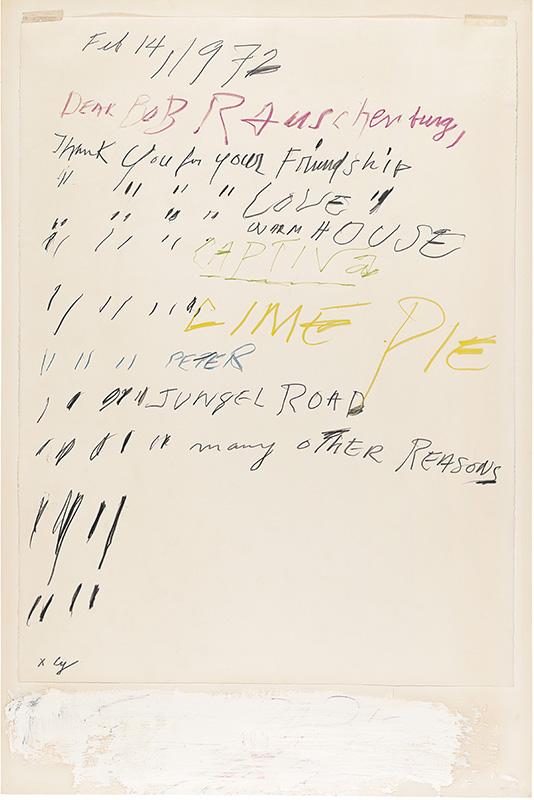 Feb 14, 1972
DEAR BOB Rauschenburg,
Thank you for your Friendship
" " " " LOVE "
" " " " WARM HOUSE
" " " CAPTIVA
" " " " LIME PIE
" " " PETER
" " " " JUNGEL ROAD
" " " " " many OTHER REASONS
" " " "
" " " "
x Cy